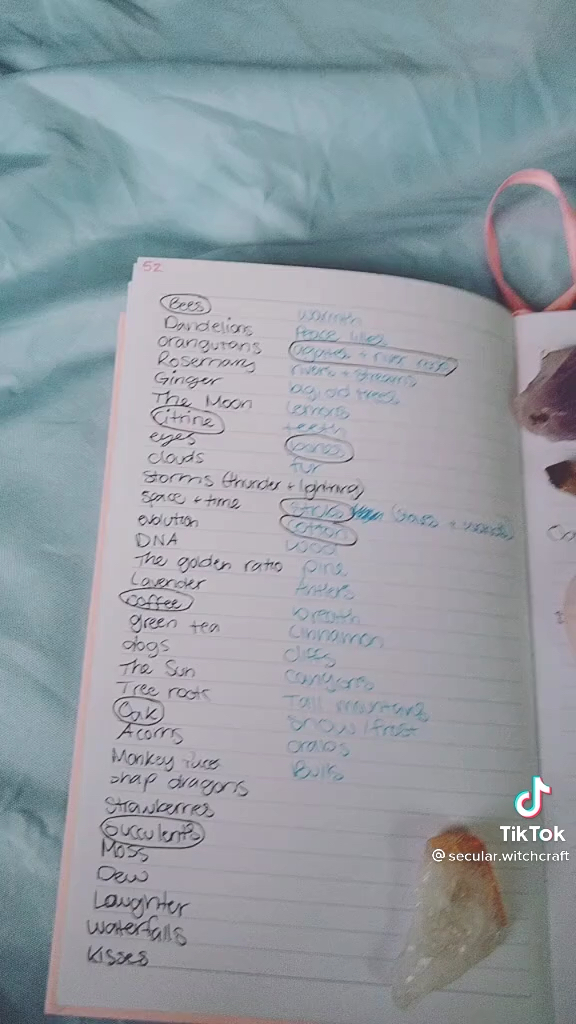 52
Bees
Dandelions
orangutans
Rosemary
Ginger
The Moon
Citrine
eyes
clouds
Storms (thunder + lightning)
space + time
evolution
DNA
The golden ratio
Lavender
coffee
green tea
dogs
The Sun
Tree roots
Oak
Acorns
Monkey
snap dragons
Strawberries
Succulents
Moss
Dew
Laughter
waterfalls
kisses
warmth
Peace lilies
agates + river rocks
rivers + streams
big, old trees
Lemons
teeth
bones
fur
sticks (staves + wands)
cotton
wool
pine
Antlers
breath
Cinnamon
cliffs
canyons
Tall mountains
snow/frost
crabs
Bulls
TikTok
@secular.witchcraft